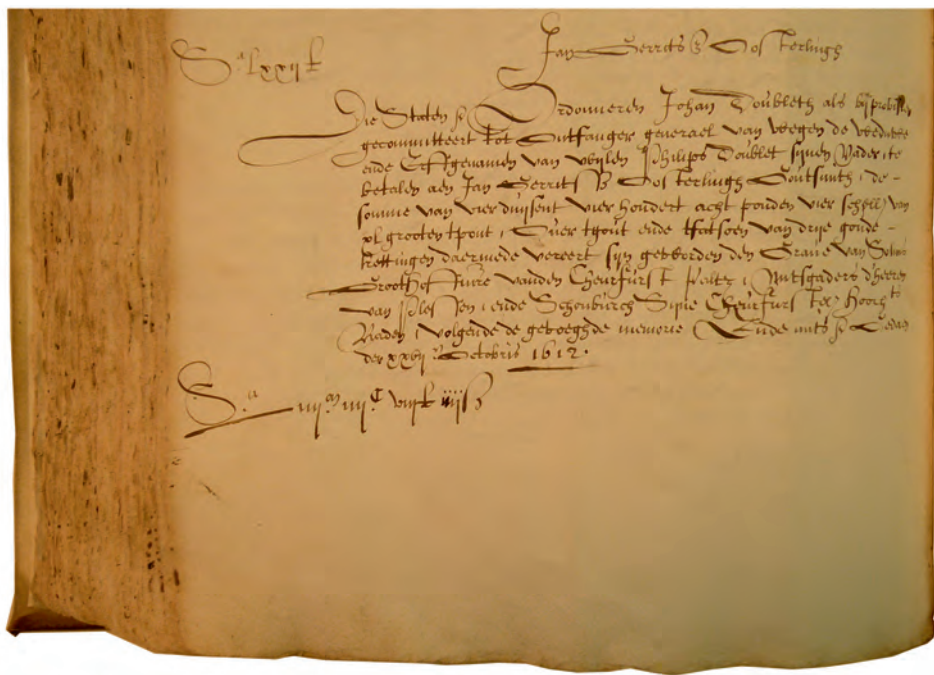 Sa lxxij £
Jan Gerrits z Oosterlingh
Die Staten etc Ordonneren Johan Doubleth als bij provisien
gecommitteert tot Ontfanger generael van wegen de weduwe
ende Erffgenamen van wijlen Philips Doublet sijnen Vader, te
betalen aen Jan Gerrits z Oosterlingh Goutsmith, de
somme van vier duijsent vier hondert acht ponden vier schell) van
xl grooten tpont, Over tgout ende tfatsoen van drije goude
kettingen daermede vereert sijn geworden den Grave van Solms
Groothofmre vanden Cheurfurst Paltz, Mitsgaders dheeren
van Plessen, ende Schonburch Sijne Cheurfurst. ex. Hooch ts
Raden, volgende de gevoeghde memorie Ende mits etc Gedaen
den xxvij en Octobris 1612.
Sa iiij m iiij C viij £ iiij s